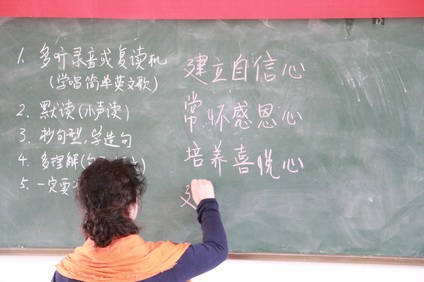 1. 多听录音或复读机
(学唱简单英文歌)
2. 默读(小声读)
3. 抄句型,学造句
4. 多理解(
5. 一定要
建立自信心
常怀感恩心
培养喜悦心